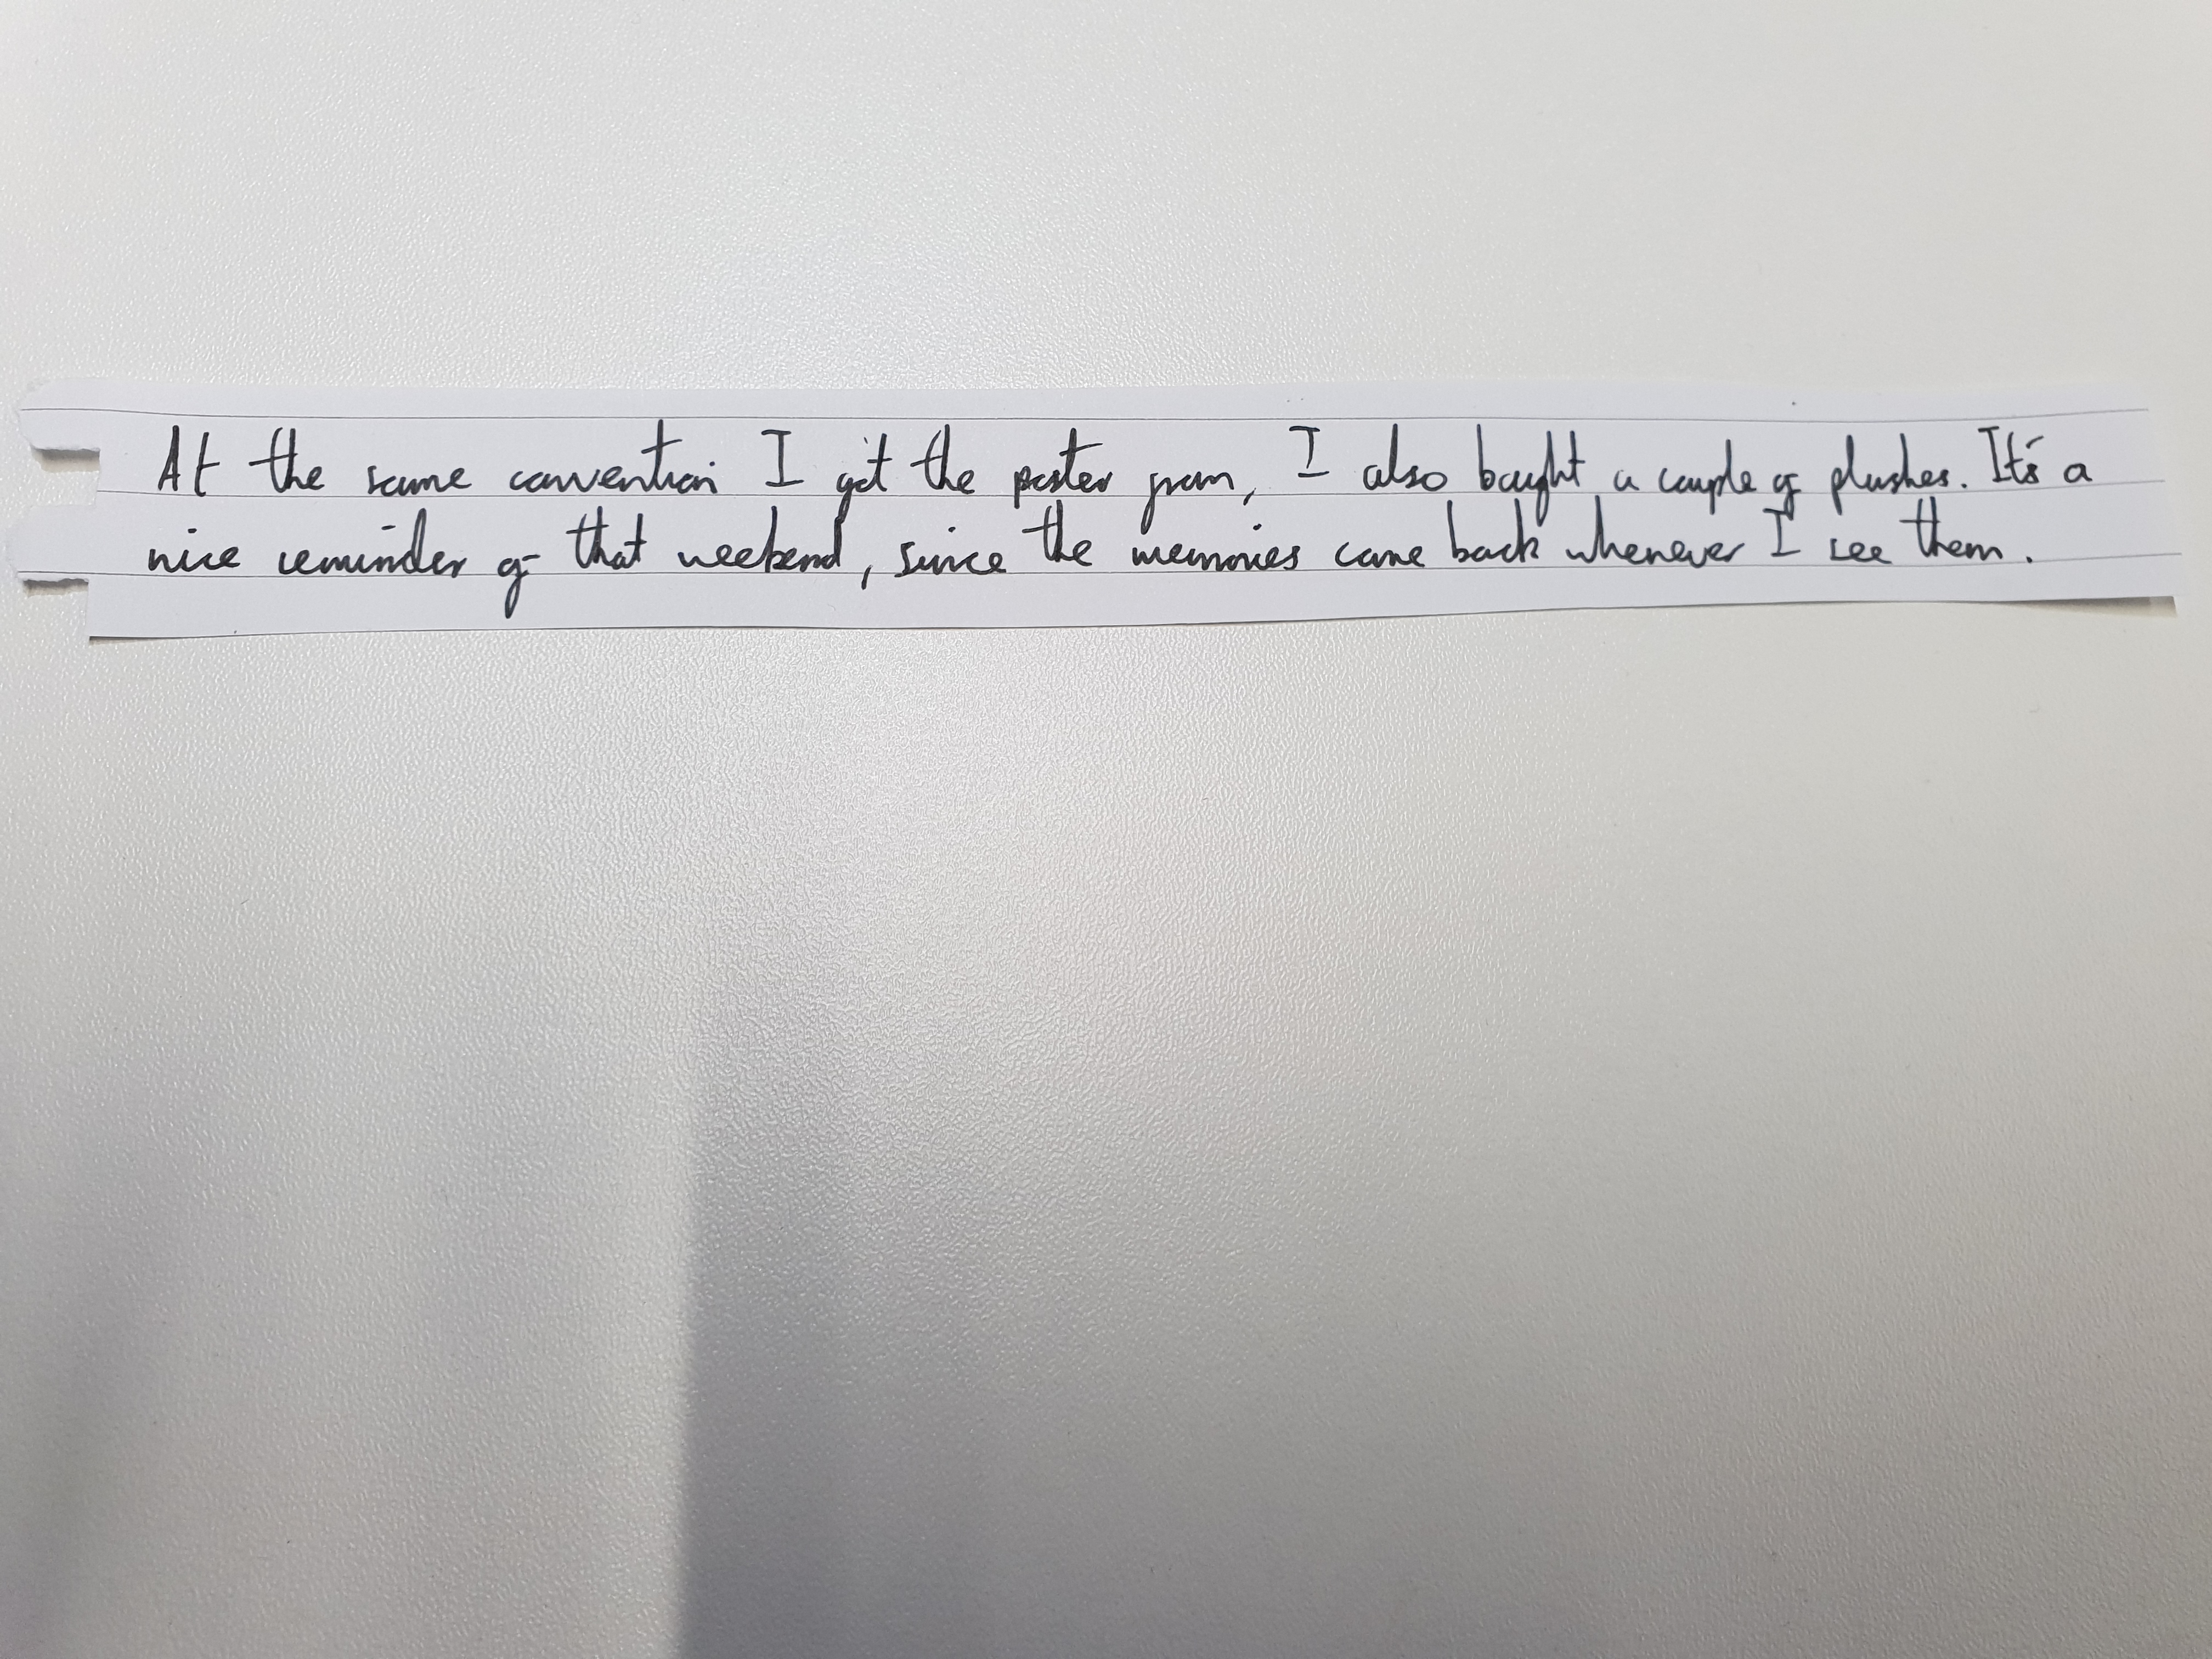 At the same convention I got the poster from, I also bought a couple of plushes. It's a
nice reminder of that weekend, since the memories come back whenever I see them.